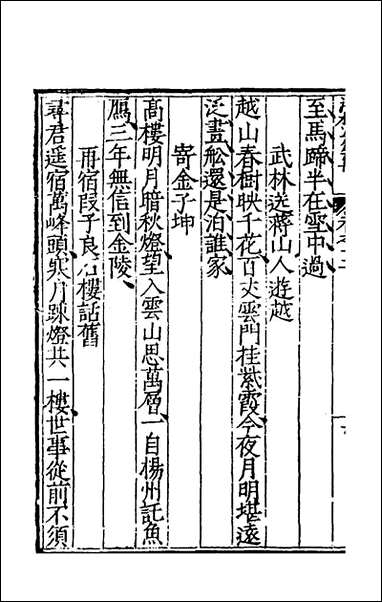 至馬蹄半在雪中過
武林送蔣山人遊越
越山春樹映千花百丈雲門挂紫霞今夜月明堪遠
泛畵舩還是泊誰家
寄金子坤
高樓明月暗秋燈望入雲山思萬層一自楊州託魚
鴈三年無信到金陵
再宿段子良石樓話舊
尋君遥宿萬峰頭狀月踈燈共一樓世事從前不須